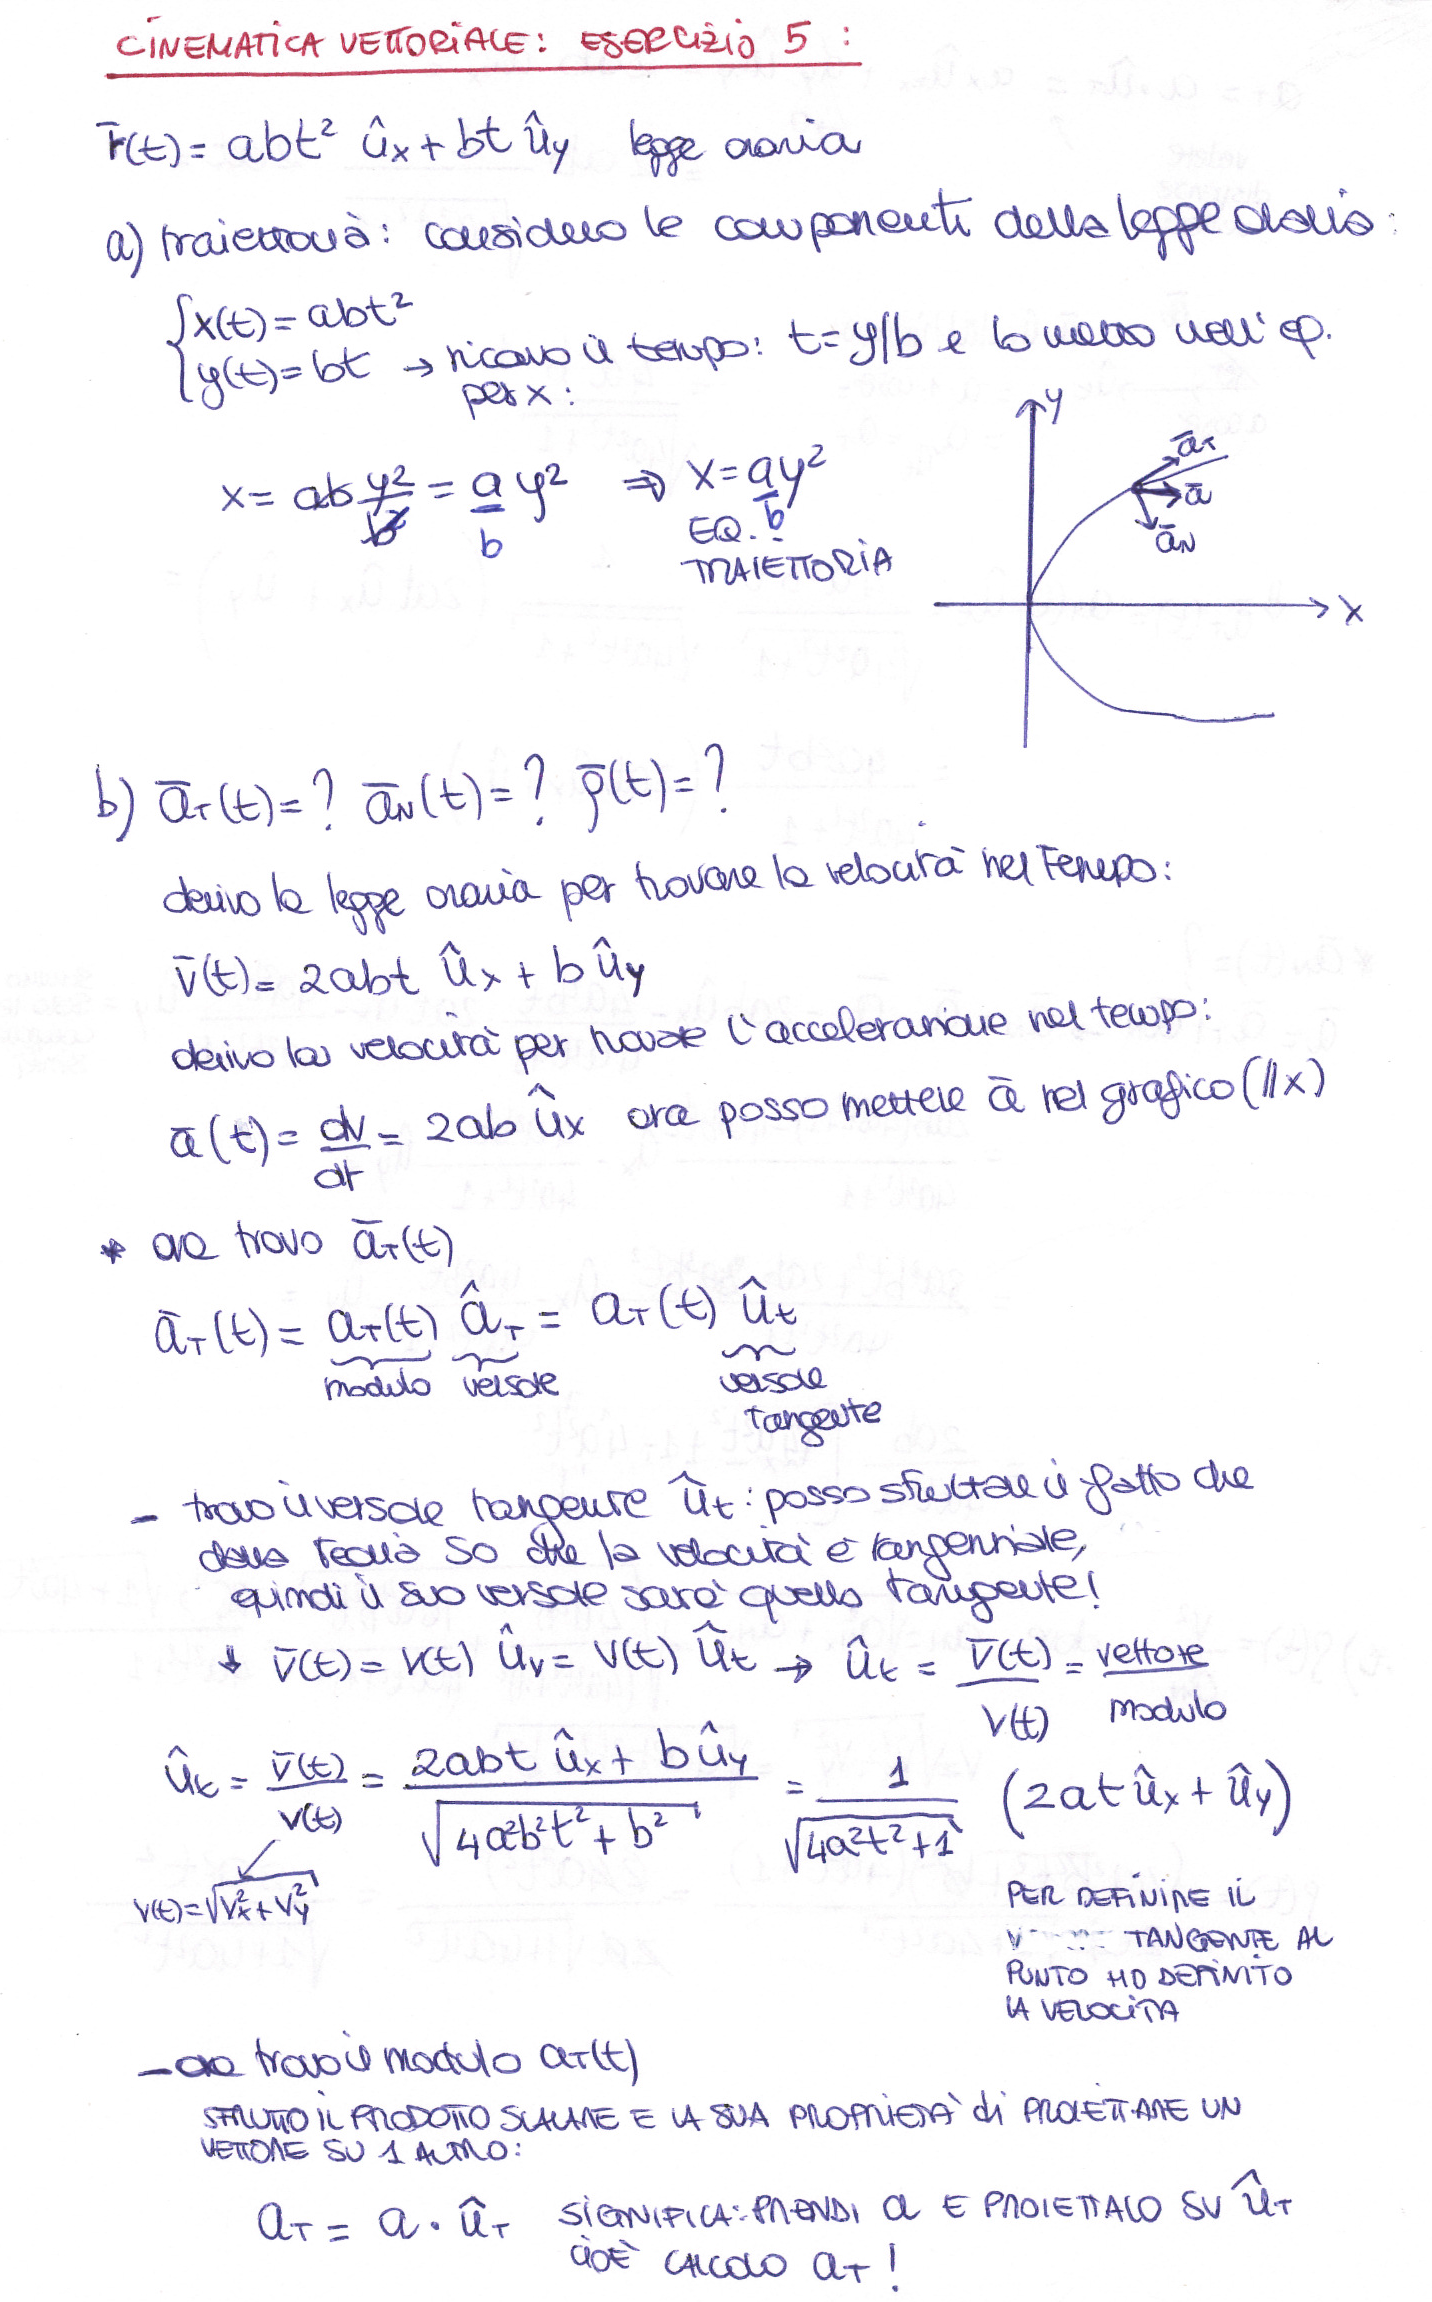 CINEMATICA VETTORIALE: ESERCIZIO 5 :
r̄(t) = abt² ûx + bt ûy legge oraria
a) traiettoria: considero le componenti della legge oraria:
{ x(t) = abt²
{ y(t) = bt → ricavo il tempo: t = y/b e lo metto nell' eq.
per x :
x = ab y²/b² = a/b y² ⇒ x = a/b y²
EQ. TRAIETTORIA
y
āT
ā
āN
x
b) āT(t) = ? āN(t) = ? ρ̄(t) = ?
derivo la legge oraria per trovare la velocità nel tempo:
v̄(t) = 2abt ûx + b ûy
derivo la velocità per trovare l'accelerazione nel tempo:
ā(t) = dv/dt = 2ab ûx ora posso mettere ā nel grafico (//x)
* ora trovo āT(t)
āT(t) = aT(t) âT = aT(t) ût
modulo versore versore
tangente
- trovo il versore tangente ût : posso sfruttare il fatto che
dalla teoria so che la velocità è tangenziale,
quindi il suo versore sarà quello tangente!
↓ v̄(t) = v(t) ûv = v(t) ût → ût = v̄(t)/v(t) = vettore/modulo
ût = v̄(t)/v(t) = (2abt ûx + b ûy)/√(4a²b²t² + b²) = 1/√(4a²t² + 1) (2at ûx + ûy)
v(t) = √(vx² + vy²)
PER DEFINIRE IL
TANGENTE AL
PUNTO HO DEFINITO
LA VELOCITA
- ora trovo il modulo aT(t)
SFRUTTO IL PRODOTTO SCALARE E LA SUA PROPRIETÀ di PROIETTARE UN
VETTORE SU 1 ALTRO:
aT = a · ûT SIGNIFICA: PRENDI a E PROIETTALO SU ûT
CIOÈ CALCOLO aT !